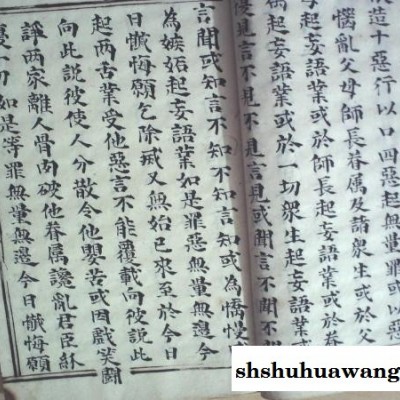 造十惡行以口四惡起無量罪或以惡
惱亂父母師長眷屬及諸眾生或於父
母起妄語業或於師長起妄語業或於眷
屬起妄語業或於一切眾生起妄語業或
見言不見不見言見或聞言不聞不聞
言聞或知言不知不知言知或為憍慢
為嫉妬起妄語業如是罪惡無量無邊今
日懺悔願乞除滅又無始已來至於今日
起兩舌業受他惡言不能覆載向彼說此
向此說彼使人分散令他嬰苦或因戲笑鬪
諍兩家離人骨肉破他眷屬讒亂君臣
一切如是等罪無量無邊今日懺悔願
shshuhuawang